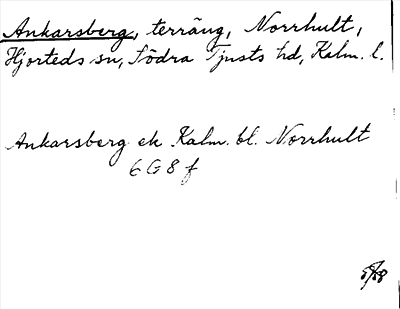 Ankarsberg, terräng, Norrhult,
Hjorteds sn, Södra Tjusts hd, Kalm. l.
Ankarsberg ek Kalm. bl. Norrhult
6 G 8 f